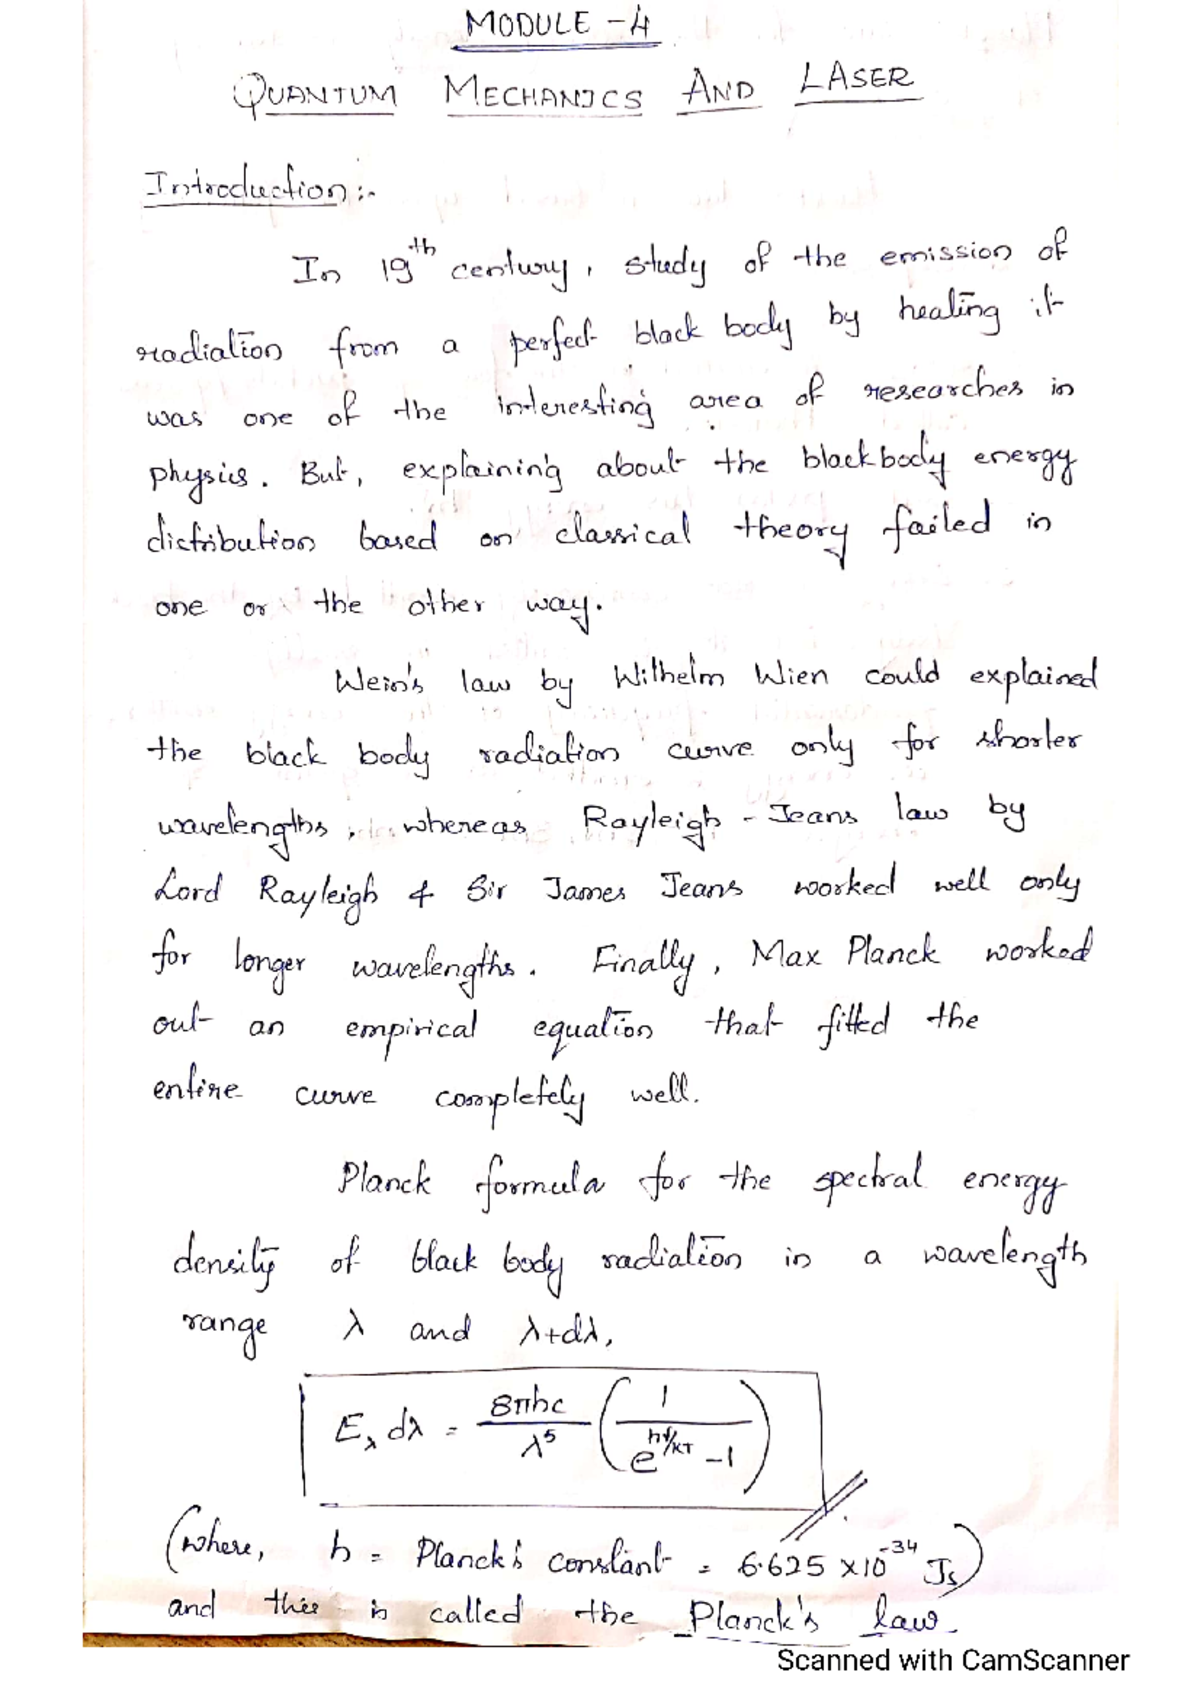 MODULE - 4
QUANTUM MECHANICS AND LASER
Introduction:-
In 19th century, study of the emission of
radiation from a perfect black body by heating it
was one of the interesting area of researches in
physics. But, explaining about the blackbody energy
distribution based on classical theory failed in
one or the other way.
Wein's law by Wilhelm Wien could explained
the black body radiation curve only for shorter
wavelengths, whereas Rayleigh - Jeans law by
Lord Rayleigh & Sir James Jeans worked well only
for longer wavelengths. Finally, Max Planck worked
out an empirical equation that fitted the
entire curve completely well.
Planck formula for the spectral energy
density of black body radiation in a wavelength
range λ and λ+dλ,
E_λ dλ = 8πhc/λ^5 (1/(e^(hf/KT) - 1))
(where, h = Planck's constant = 6.625 × 10^-34 Js)
and this is called the Planck's law.
Scanned with CamScanner